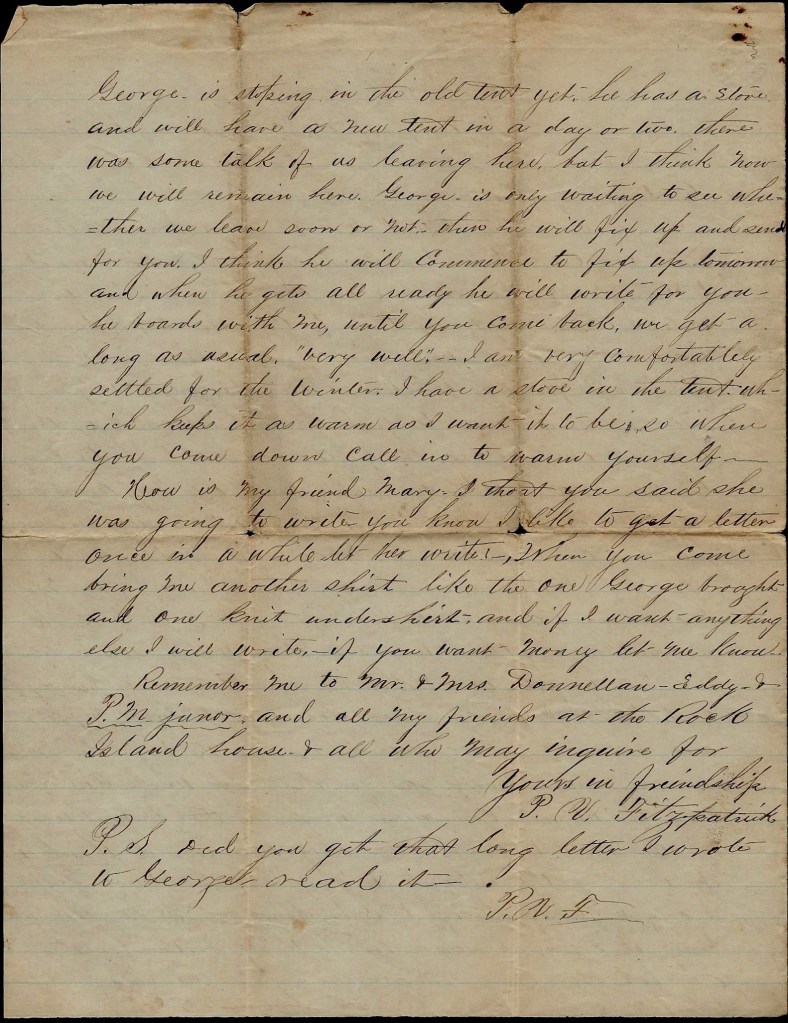 George - is stoping in the old tent yet. he has a stove
and will have a new tent in a day or two. there
was some talk of us leaving here, but I think now
we will remain here. George - is only waiting to see whe-
=ther we leave soon or not, - then he will fix up and send
for you. I think he will commence to fix up tomorrow
and when he gets all ready he will write for you -
he boards with me, until you come back, we get a.
long as usual, "very well". - - I am very comfortablely
settled for the winter. I have a stove in the tent. wh-
=ich keeps it as warm as I want it to be, so when
you come down call in to warm yourself -
How is my friend Mary - I thoat you said she
was going to write you know I like to get a letter
once in a while let her write! -, When you come
bring me another shirt like the one George brought
and one knit undershirt. and if I want anything
else I will write, - if you want money let me know -
Remember me to Mr. & Mrs. Donnellan - Eddy - &
P. M. junor. and all my friends at the Rock
Island house - & all who may inquire for
Yours in freindship
P. V. Fitzpatrick
P. S. Did you get that long letter I wrote
to George - read it -
P. V. F